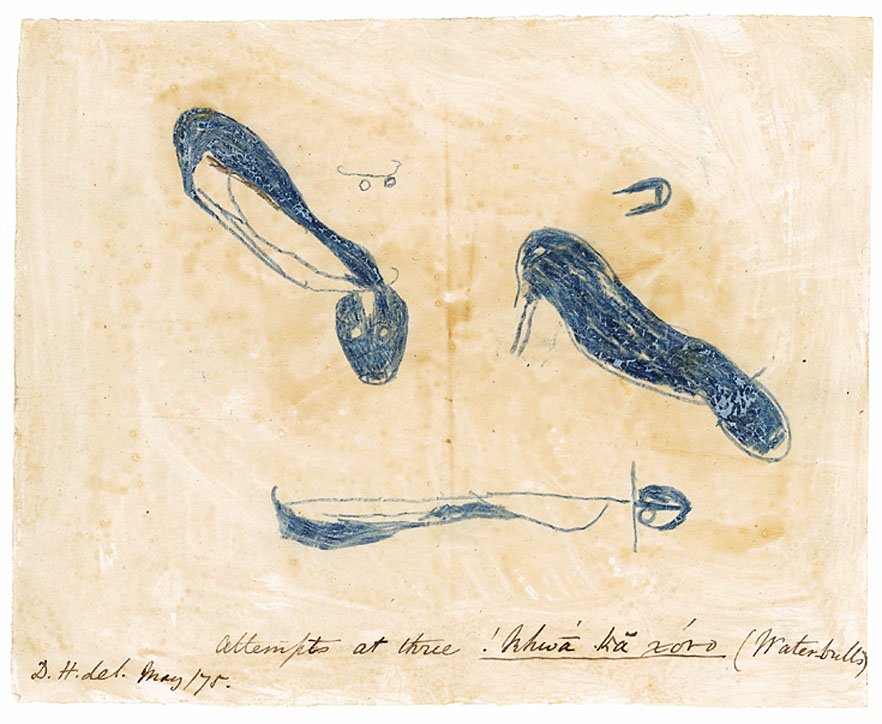 Attempts at three !khwā́ kā̃ xóro (Water-bulls)
D. H. del. May/75.